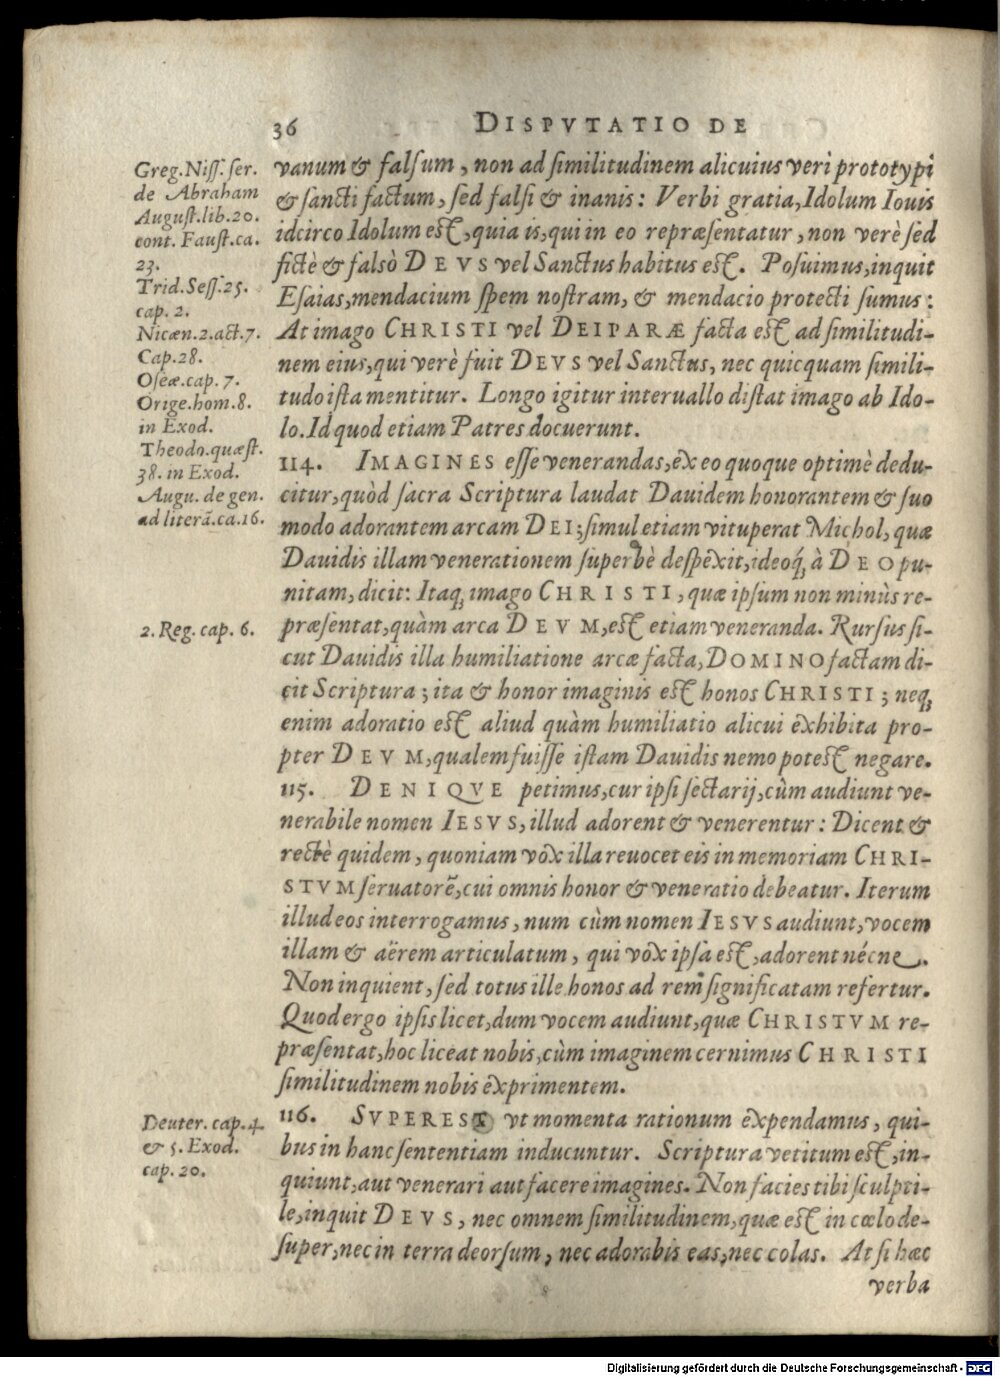 36 DISPVTATIO DE
Greg. Niss. ser.
de Abraham
August. lib. 20.
cont. Faust. ca.
23.
Trid. Sess. 25.
cap. 2.
Nicæn. 2. act. 7.
Cap. 28.
Oseæ. cap. 7.
Orige. hom. 8.
in Exod.
Theodo. quæst.
38. in Exod.
Augu. de gen.
ad literā. ca. 16.
vanum & falsum, non ad similitudinem alicuius veri prototypi
& sancti factum, sed falsi & inanis: Verbi gratia, Idolum Iouis
idcirco Idolum est, quia is, qui in eo repræsentatur, non verè sed
fictè & falsò DEVS vel Sanctus habitus est. Posuimus, inquit
Esaias, mendacium spem nostram, & mendacio protecti sumus:
At imago CHRISTI vel DEIPARÆ facta est ad similitudi-
nem eius, qui verè fuit DEVS vel Sanctus, nec quicquam simili-
tudo ista mentitur. Longo igitur interuallo distat imago ab Ido-
lo. Id quod etiam Patres docuerunt.
114. IMAGINES esse venerandas, ex eo quoque optimè dedu-
citur, quòd sacra Scriptura laudat Dauidem honorantem & suo
modo adorantem arcam DEI; simul etiam vituperat Michol, quæ
Dauidis illam venerationem superbè despexit, ideoq́; à DEO pu-
nitam, dicit: Itaq; imago CHRISTI, quæ ipsum non minùs re-
2. Reg. cap. 6.
præsentat, quàm arca DEVM, est etiam veneranda. Rursus si-
cut Dauidis illa humiliatione arcæ facta, DOMINO factam di-
cit Scriptura; ita & honor imaginis est honos CHRISTI; neq;
enim adoratio est aliud quàm humiliatio alicui exhibita pro-
pter DEVM, qualem fuisse istam Dauidis nemo potest negare.
115. DENIQVE petimus, cur ipsi sectarij, cùm audiunt ve-
nerabile nomen IESVS, illud adorent & venerentur: Dicent &
rectè quidem, quoniam vox illa reuocet eis in memoriam CHRI-
STVM seruatorē, cui omnis honor & veneratio debeatur. Iterum
illud eos interrogamus, num cùm nomen IESVS audiunt, vocem
illam & aërem articulatum, qui vox ipsa est, adorent nécne.
Non inquient, sed totus ille honos ad rem significatam refertur.
Quod ergo ipsis licet, dum vocem audiunt, quæ CHRISTVM re-
præsentat, hoc liceat nobis, cùm imaginem cernimus CHRISTI
similitudinem nobis exprimentem.
Deuter. cap. 4.
& 5. Exod.
cap. 20.
116. SVPEREST vt momenta rationum expendamus, qui-
bus in hanc sententiam inducuntur. Scriptura vetitum est, in-
quiunt, aut venerari aut facere imagines. Non facies tibi sculpti-
le, inquit DEVS, nec omnem similitudinem, quæ est in cœlo de-
super, nec in terra deorsum, nec adorabis eas, nec colas. At si hæc
verba
Digitalisierung gefördert durch die Deutsche Forschungsgemeinschaft - DFG